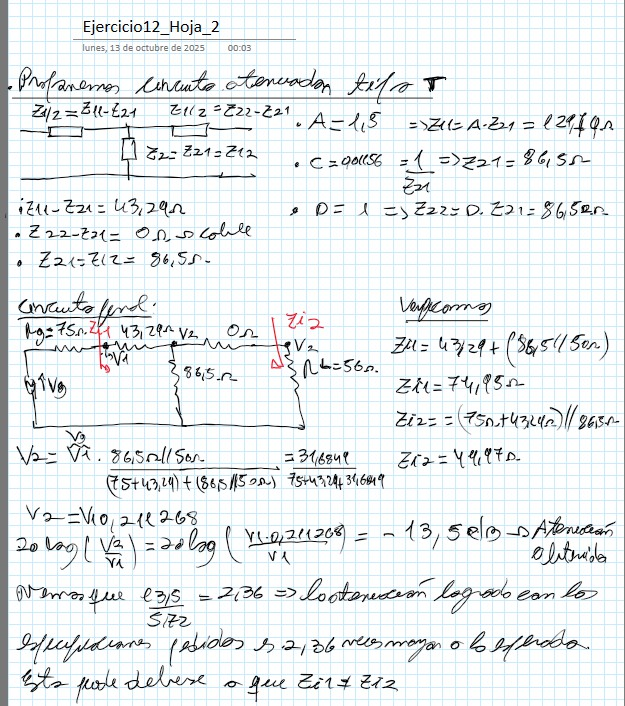 Ejercicio12_Hoja_2
lunes, 13 de octubre de 2025 00:03
circuito atenuador tipo T
Z1/2 = Z11-Z21 Z1/2 = Z22-Z21
Z2 = Z21 = Z12
• A = 1,5 => Z11 = A·Z21 = 129,79Ω
• C = 0,01156 = 1/Z21 => Z21 = 86,5Ω
• D = 1 => Z22 = D·Z21 = 86,5Ω
Z11-Z21 = 43,29Ω
• Z22-Z21 = 0Ω -> cable
• Z21 = Z12 = 86,5Ω
Circuito final:
Rg = 75Ω Zi1 43,29Ω V2 0Ω Zi2
V1 V2
Vg 86,5Ω RL = 50Ω
Verificamos
Zi1 = 43,29 + (86,5//50Ω)
Zi1 = 74,95Ω
Zi2 = = (75Ω+43,29Ω)//86,5Ω
Zi2 = 49,97Ω
Vg
V2 = V1 · 86,5Ω//50Ω / (75+43,29)+(86,5//50Ω) = 31,6849 / 75+43,29+31,6849
V2 = V1 0,211268
20 log (V2/V1) = 20 log (V1·0,211268 / V1) = -13,5 dB -> Atenuación
obtenida
Vemos que 13,5/5,72 = 2,36 => la atenuación lograda con las
especificaciones pedidas es 2,36 veces mayor a la esperada.
Esto puede deberse a que Zi1 ≠ Zi2